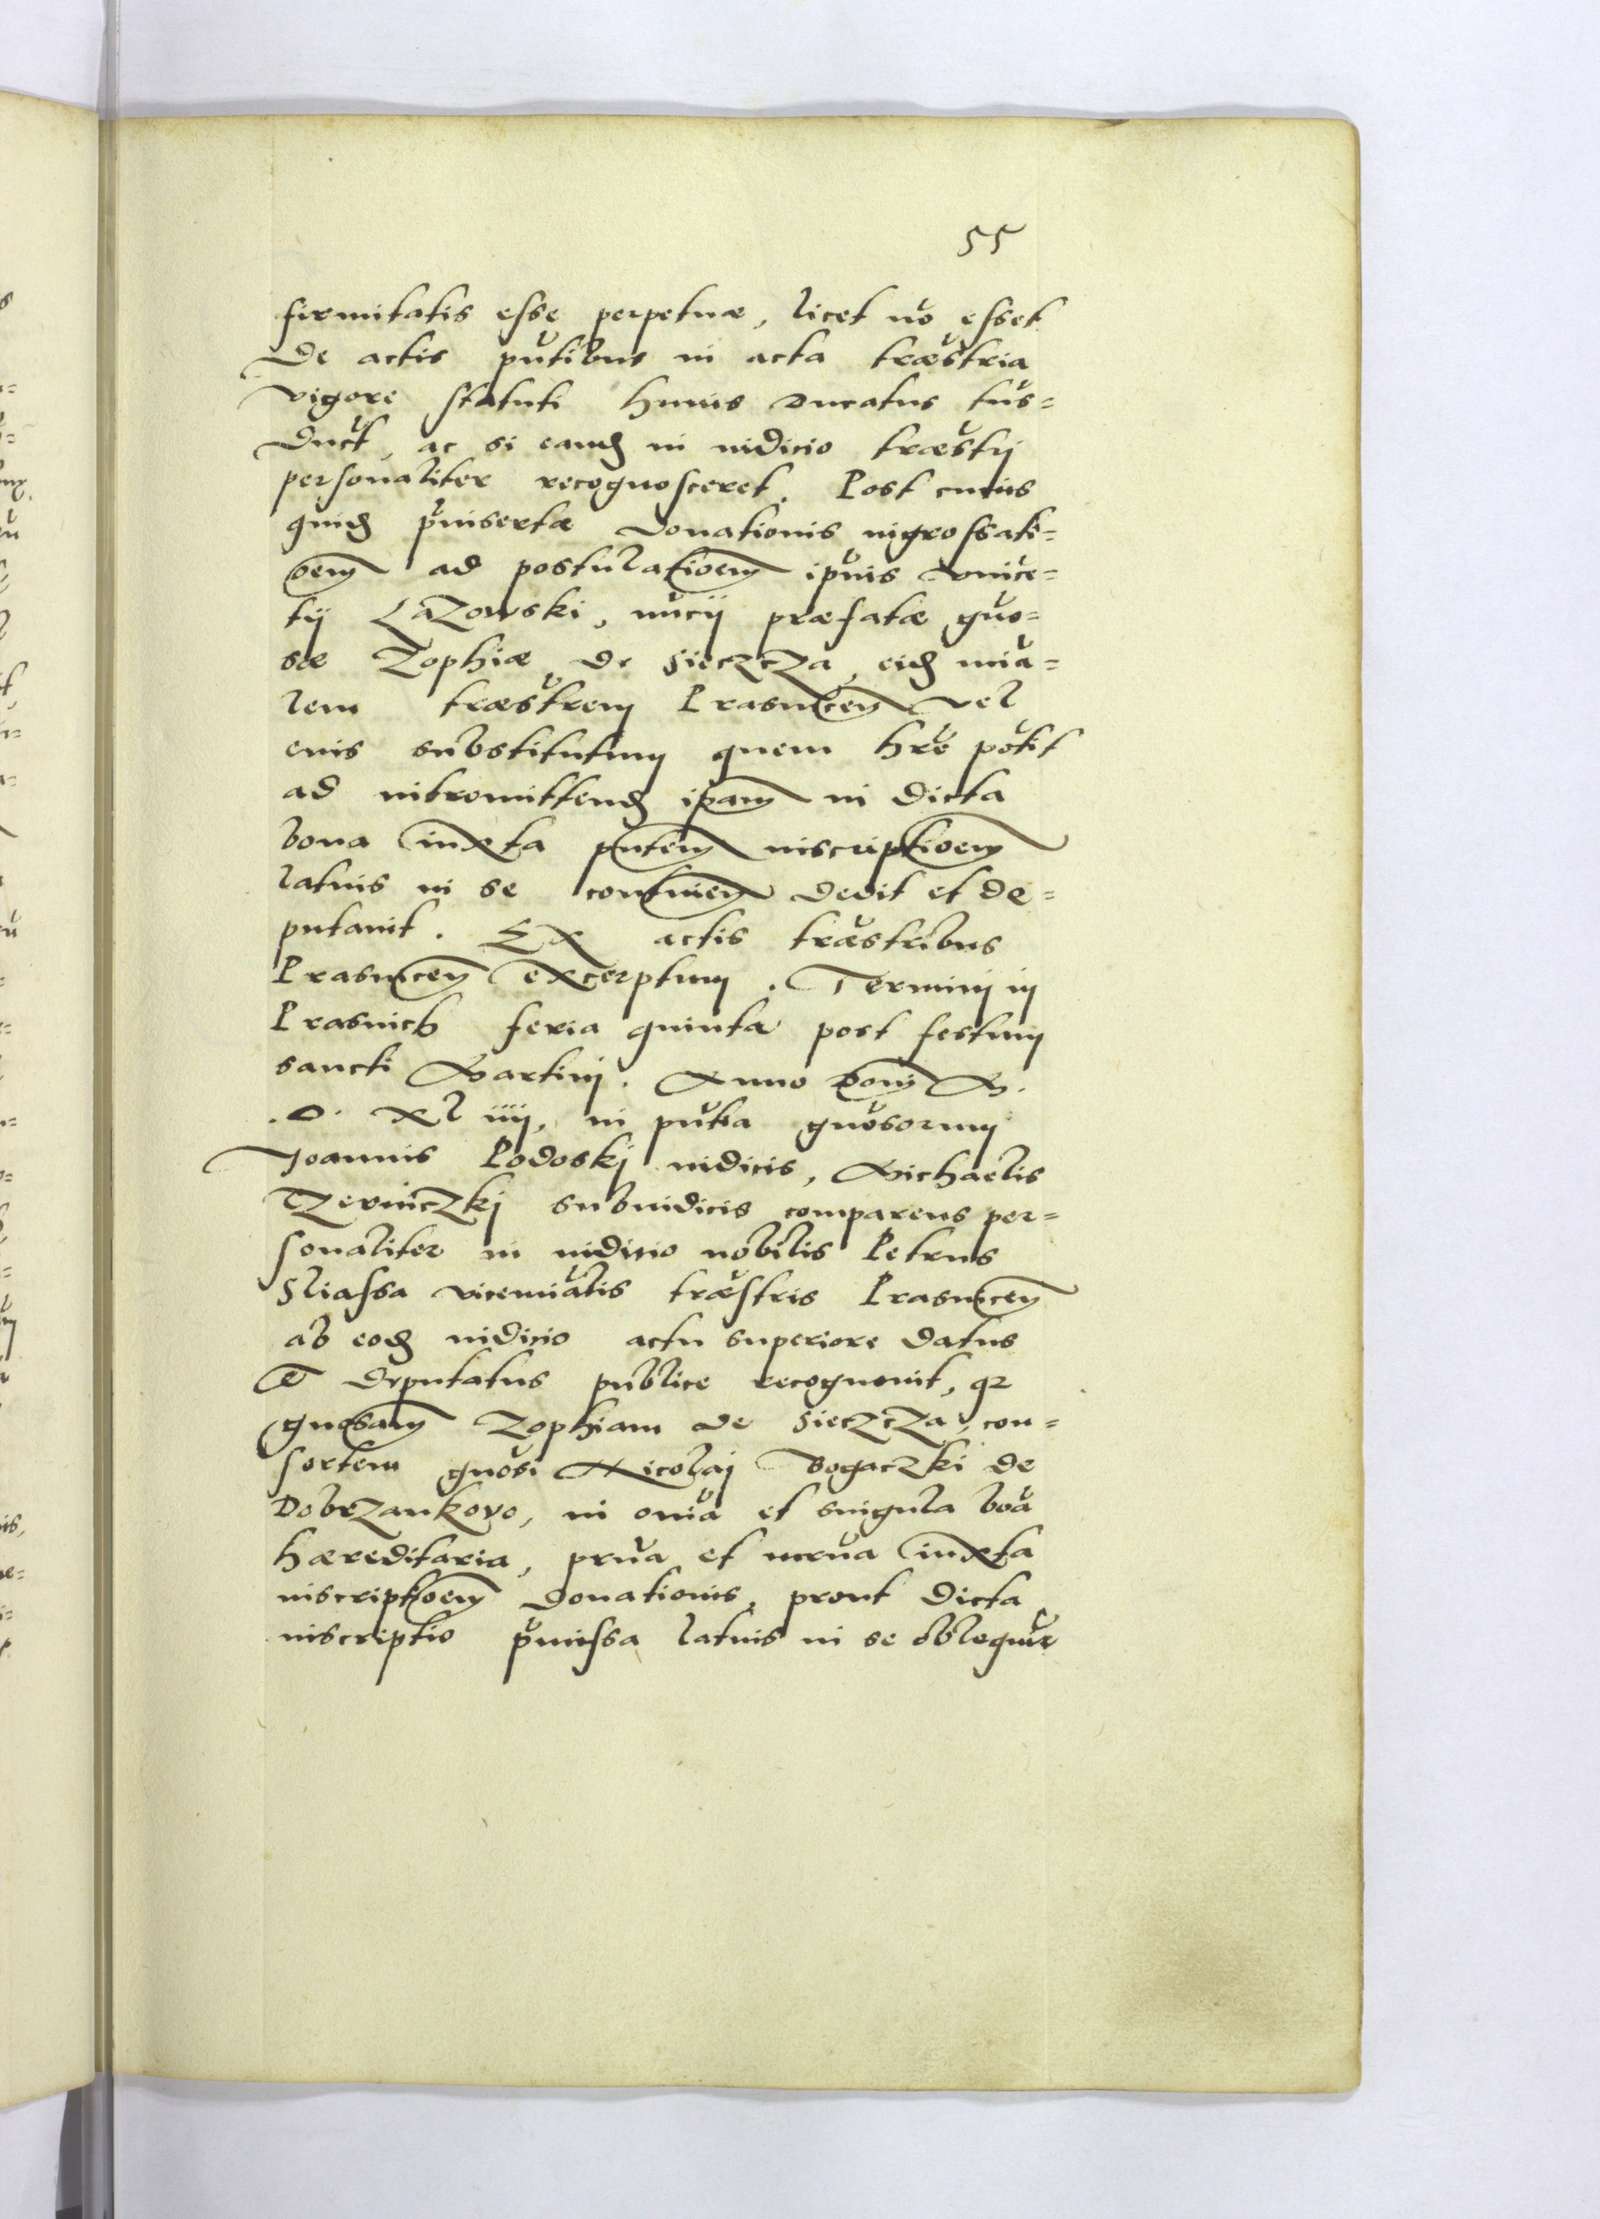 55
firmitatis esse perpetuæ, licet nō esset
De actis pñtibus in acta træstria
vigore statuti huius Ducatus tūs=
duct, ac si eand in iudicio træstrj
personaliter recognosceret. Post cuius
quid p̄insertæ Donationis ingrossati=
oem ad postulatioem ipīus Vince=
tij Lazowski, nūcij præfatæ gno=
sæ Zophiæ de Sieczcza, eid miā=
lem træstrem Prasnicen vel
eius substitutum quem hr̄e potit
ad intromittend ipam in dicta
bona iuxta pntem inscriptioem
latius in se continen dedit et de=
putauit. Ex actis træstribus
Prasnicen excerptum. Terminj in
Prasnich feria quinta post festum
sancti Martinj. Anno Domj M.
.D. xl iiij, in pñtia gnosorum
Joannis Podoskj iudicis, Michaelis
Czerniczkj subiudicis comparens per=
sonaliter in iudicio nobilis Petrus
Sliassa viceministalis træstris Prasnicen
ab eod iudicio actu superiore datus
et deputatus publice recognouit, qz
gnosam Zophiam de Sieczcza, con=
sortem gnosi Nicolaj Bogaczki de
Dobrzankovo, in oniā et singula bōa
hæreditaria, prn̄a et mrn̄a iuxta
inscriptioem Donationis, prout dicta
inscriptio p̄missa latius in se obloquit̄r